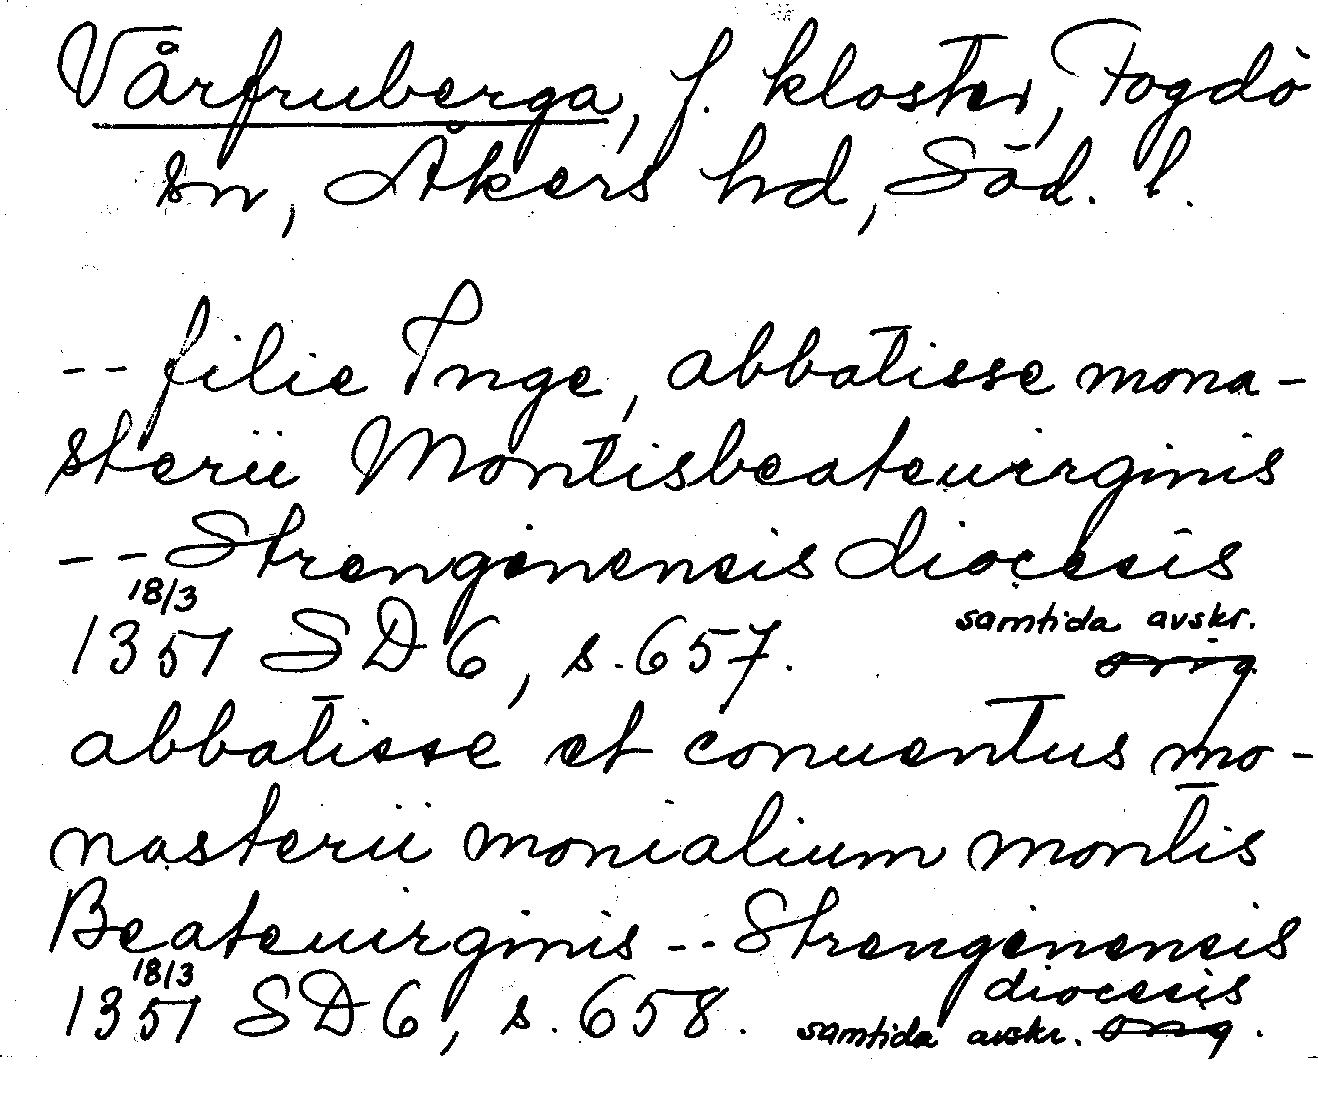 Vårfruberga, f. kloster, Fogdö
sn, Åkers hd, Söd. l.
-- filie Inge, abbatisse mona-
sterii Montisbeateuirginis
-- Strengenensis diocesis
18/3
1351 SD 6, s. 657. samtida avskr.
orig.
abbatisse et conuentus mo-
nasterii monialium montis
Beateuirginis -- Strengenensis
diocesis
18/3
1351 SD 6, s. 658. samtida avskr. orig.